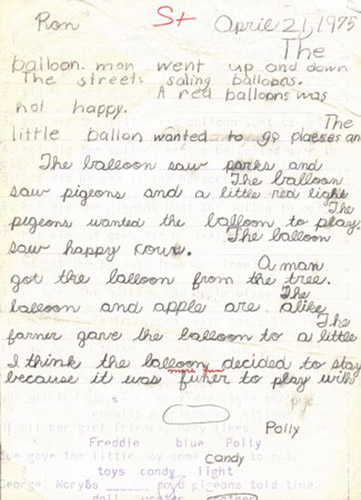 Ron St April 21, 1975
The
balloon. man went up and down
The streets saling balloons.
A red balloons was
not happy.
The
little ballon wanted to go plaeses an
The balloon saw parks and
The balloon
saw pigeons and a little red light
The
pigeons wanted the balloon to play.
The balloon
saw happy cows.
A man
got the balloon from the tree.
The
balloon and apple are alike
The
farmer gave the balloon to a little
I think the balloon decided to stay
more fun
because it was funer to play with
Polly
Freddie blue Polly
gove the little boy candy to
toys candy light
George, pigeons told time.
doll